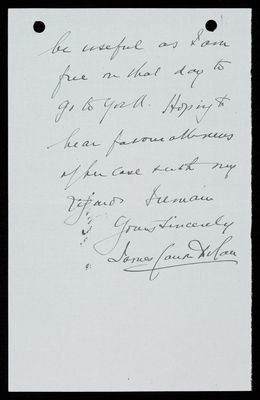 be useful as I am
free on that day to
go to York. Hoping to
hear favourable news
of her case with my
regards I remain
Yours Sincerely
James